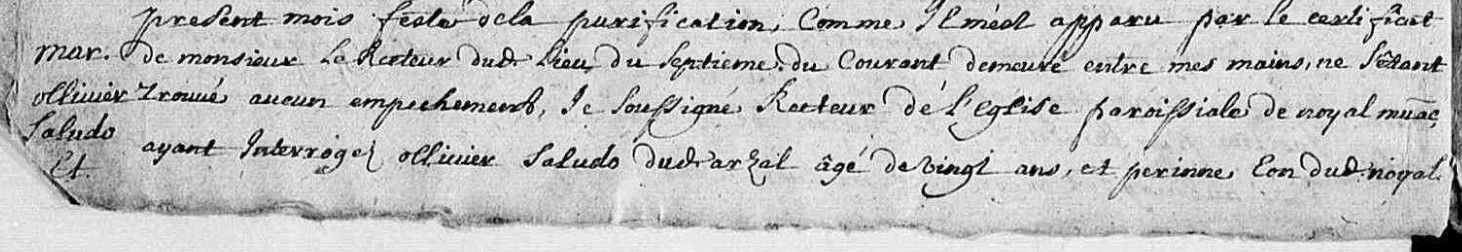 present mois feste de la purification, Comme Il m'est apparu par le certificat
mar. de monsieur Le Recteur dud. Lieu, du septieme du Courant demeuré entre mes mains, ne s'étant
ollivier trouvé aucun empechement, Je soussigné Recteur de l'Eglise paroissiale de noyal muzac,
Saludo
ayant Interrogé ollivier Saludo dud. arzal âgé de vingt ans, et perinne Eon dud. noyal
Et.